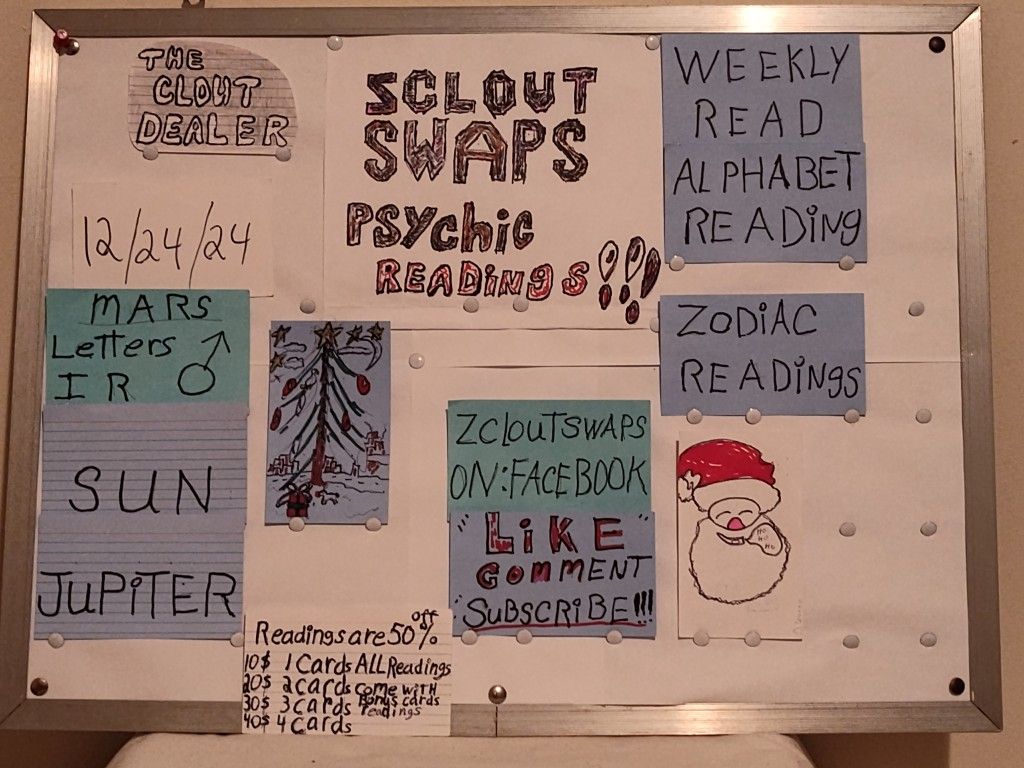 THE
CLOUT
DEALER
ZCLOUT
SWAPS
PSYchic
READiNgS!!!
WEEKLY
READ
ALPHABET
READiNg
12/24/24
MARS
Letters ♂
I R
SUN
JUPiTER
ZODiAC
READiNgS
ZCLOUTSWAPS
ON:FACEBOOK
"LiKE"
COMMENT
SUBSCRiBE!!!
HO
HO
HO
Readings are 50% off
10$ 1 Cards ALL Readings
20$ 2 cards come with
30$ 3 cards Bonus cards
readings
40$ 4 Cards